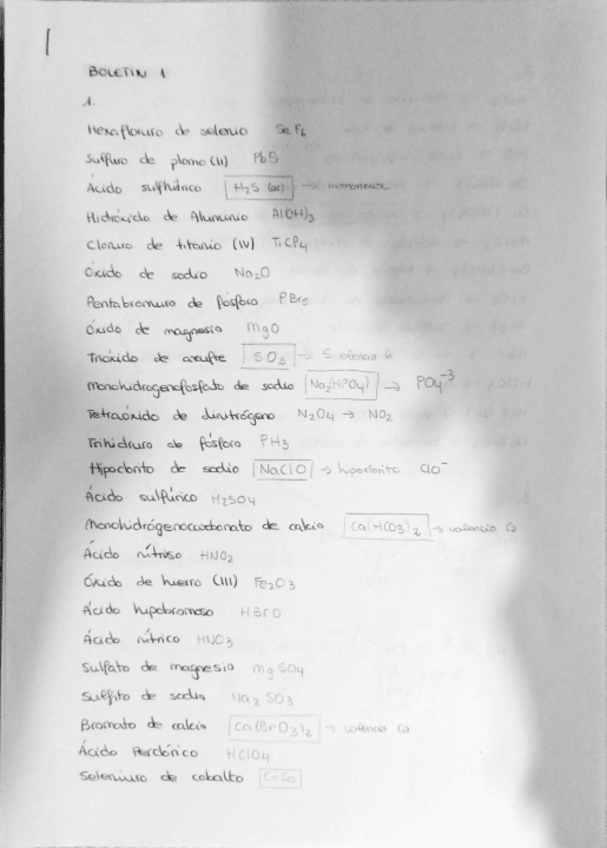 1
BOLETIN 1
1.
Hexafloruro de selenio SeF6
Sulfuro de plomo (II) PbS
Ácido sulfhídrico H2S (ac) →
Hidróxido de Aluminio Al(OH)3
Cloruro de titanio (IV) TiCl4
Óxido de sodio Na2O
Pentabromuro de fósforo PBr5
Óxido de magnesio MgO
Trióxido de azufre SO3 → S valencia 6
Monohidrogenofosfato de sodio Na2(HPO4) → PO4-3
Tetraóxido de dinitrógeno N2O4 → NO2
Trihidruro de fósforo PH3
Hipoclorito de sodio NaClO → hipoclorito ClO-
Ácido sulfúrico H2SO4
Monohidrógenocarbonato de calcio Ca(HCO3)2 → valencia Ca
Ácido nitroso HNO2
Óxido de hierro (III) Fe2O3
Ácido hipobromoso HBrO
Ácido nítrico HNO3
Sulfato de magnesio MgSO4
Sulfito de sodio Na2SO3
Bromato de calcio Ca(BrO3)2 → valencia Ca
Ácido Perclórico HClO4
Seleniuro de cobalto CoSe